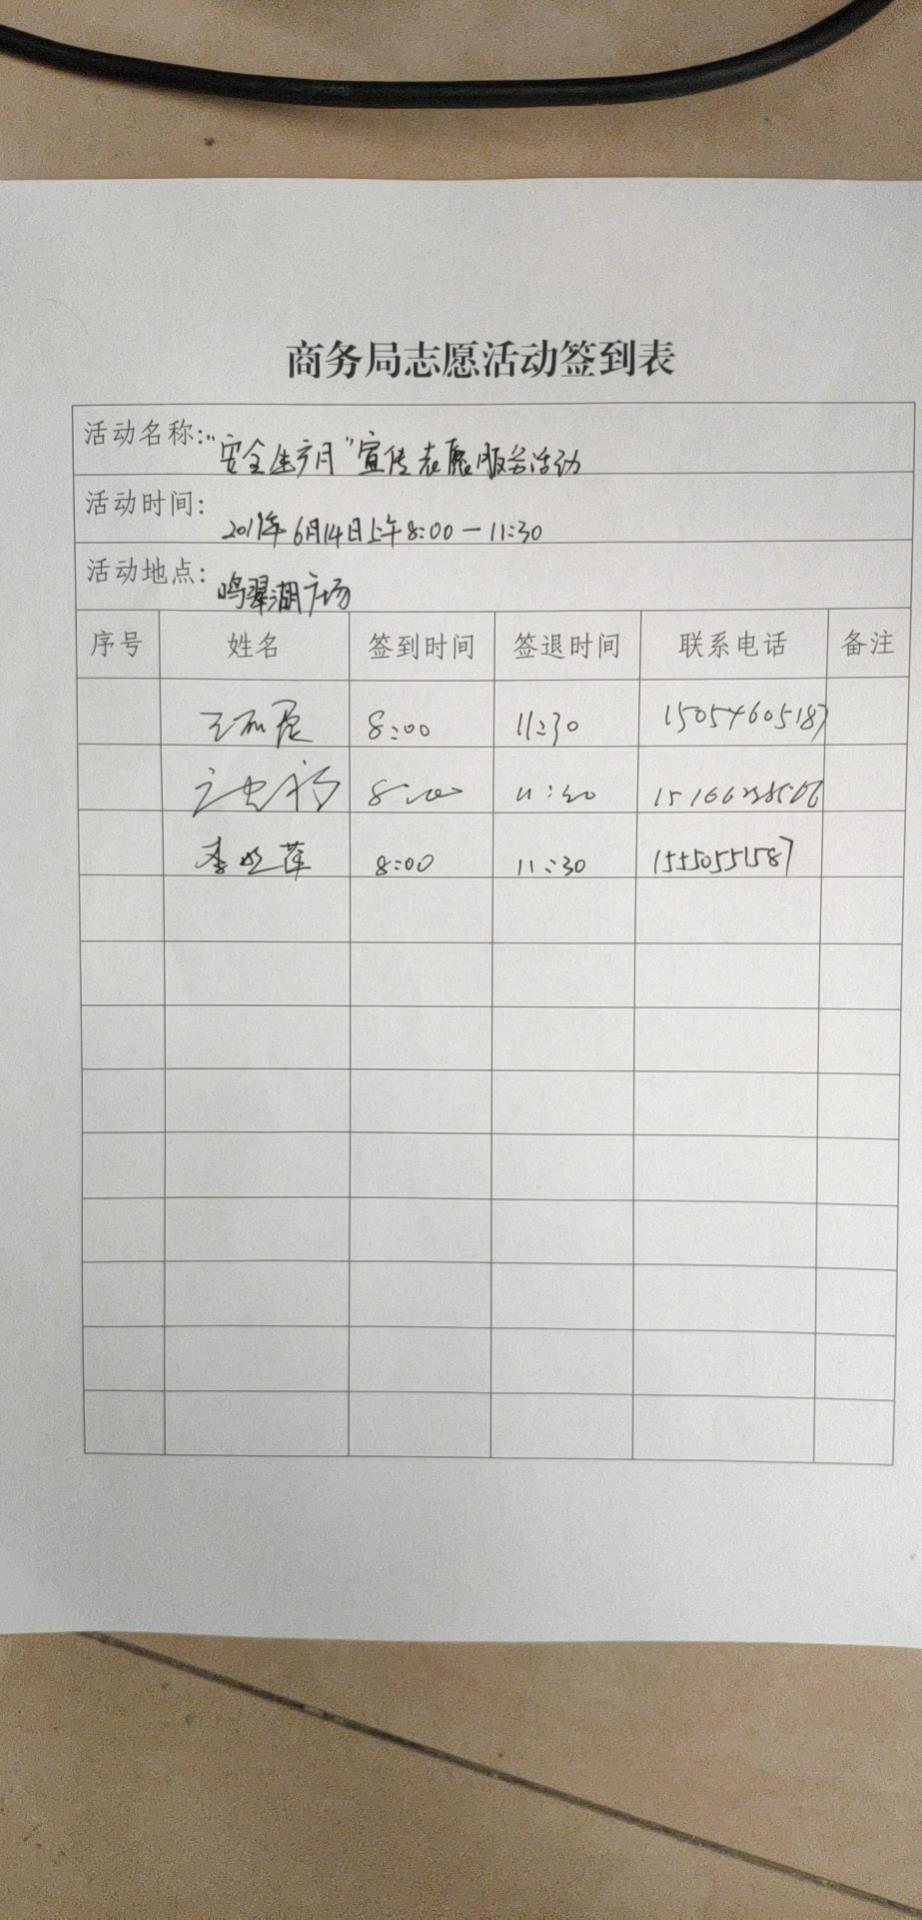 商务局志愿活动签到表
活动名称:"安全生产月"宣传志愿服务活动
活动时间: 2019年6月14日上午8:00-11:30
活动地点: 鸣翠湖广场
序号 姓名 签到时间 签退时间 联系电话 备注
8:00 11:30 15054605187
8:00 11:30
8:00 11:30 15550551587